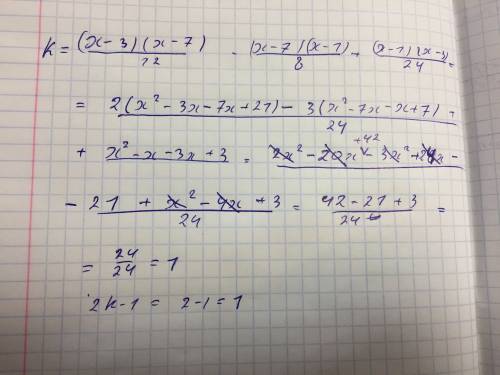 K = (x-3)(x-7)/12 - (x-7)(x-1)/8 + (x-1)(x-3)/24 =
= 2(x²-3x-7x+21) - 3(x²-7x-x+7)/24 +
+ x²-x-3x+3 = 2x²-20x+42-3x²+24x-
-21+x²-4x+3/24 = 42-21+3/24 =
= 24/24 = 1
2k-1 = 2-1 = 1